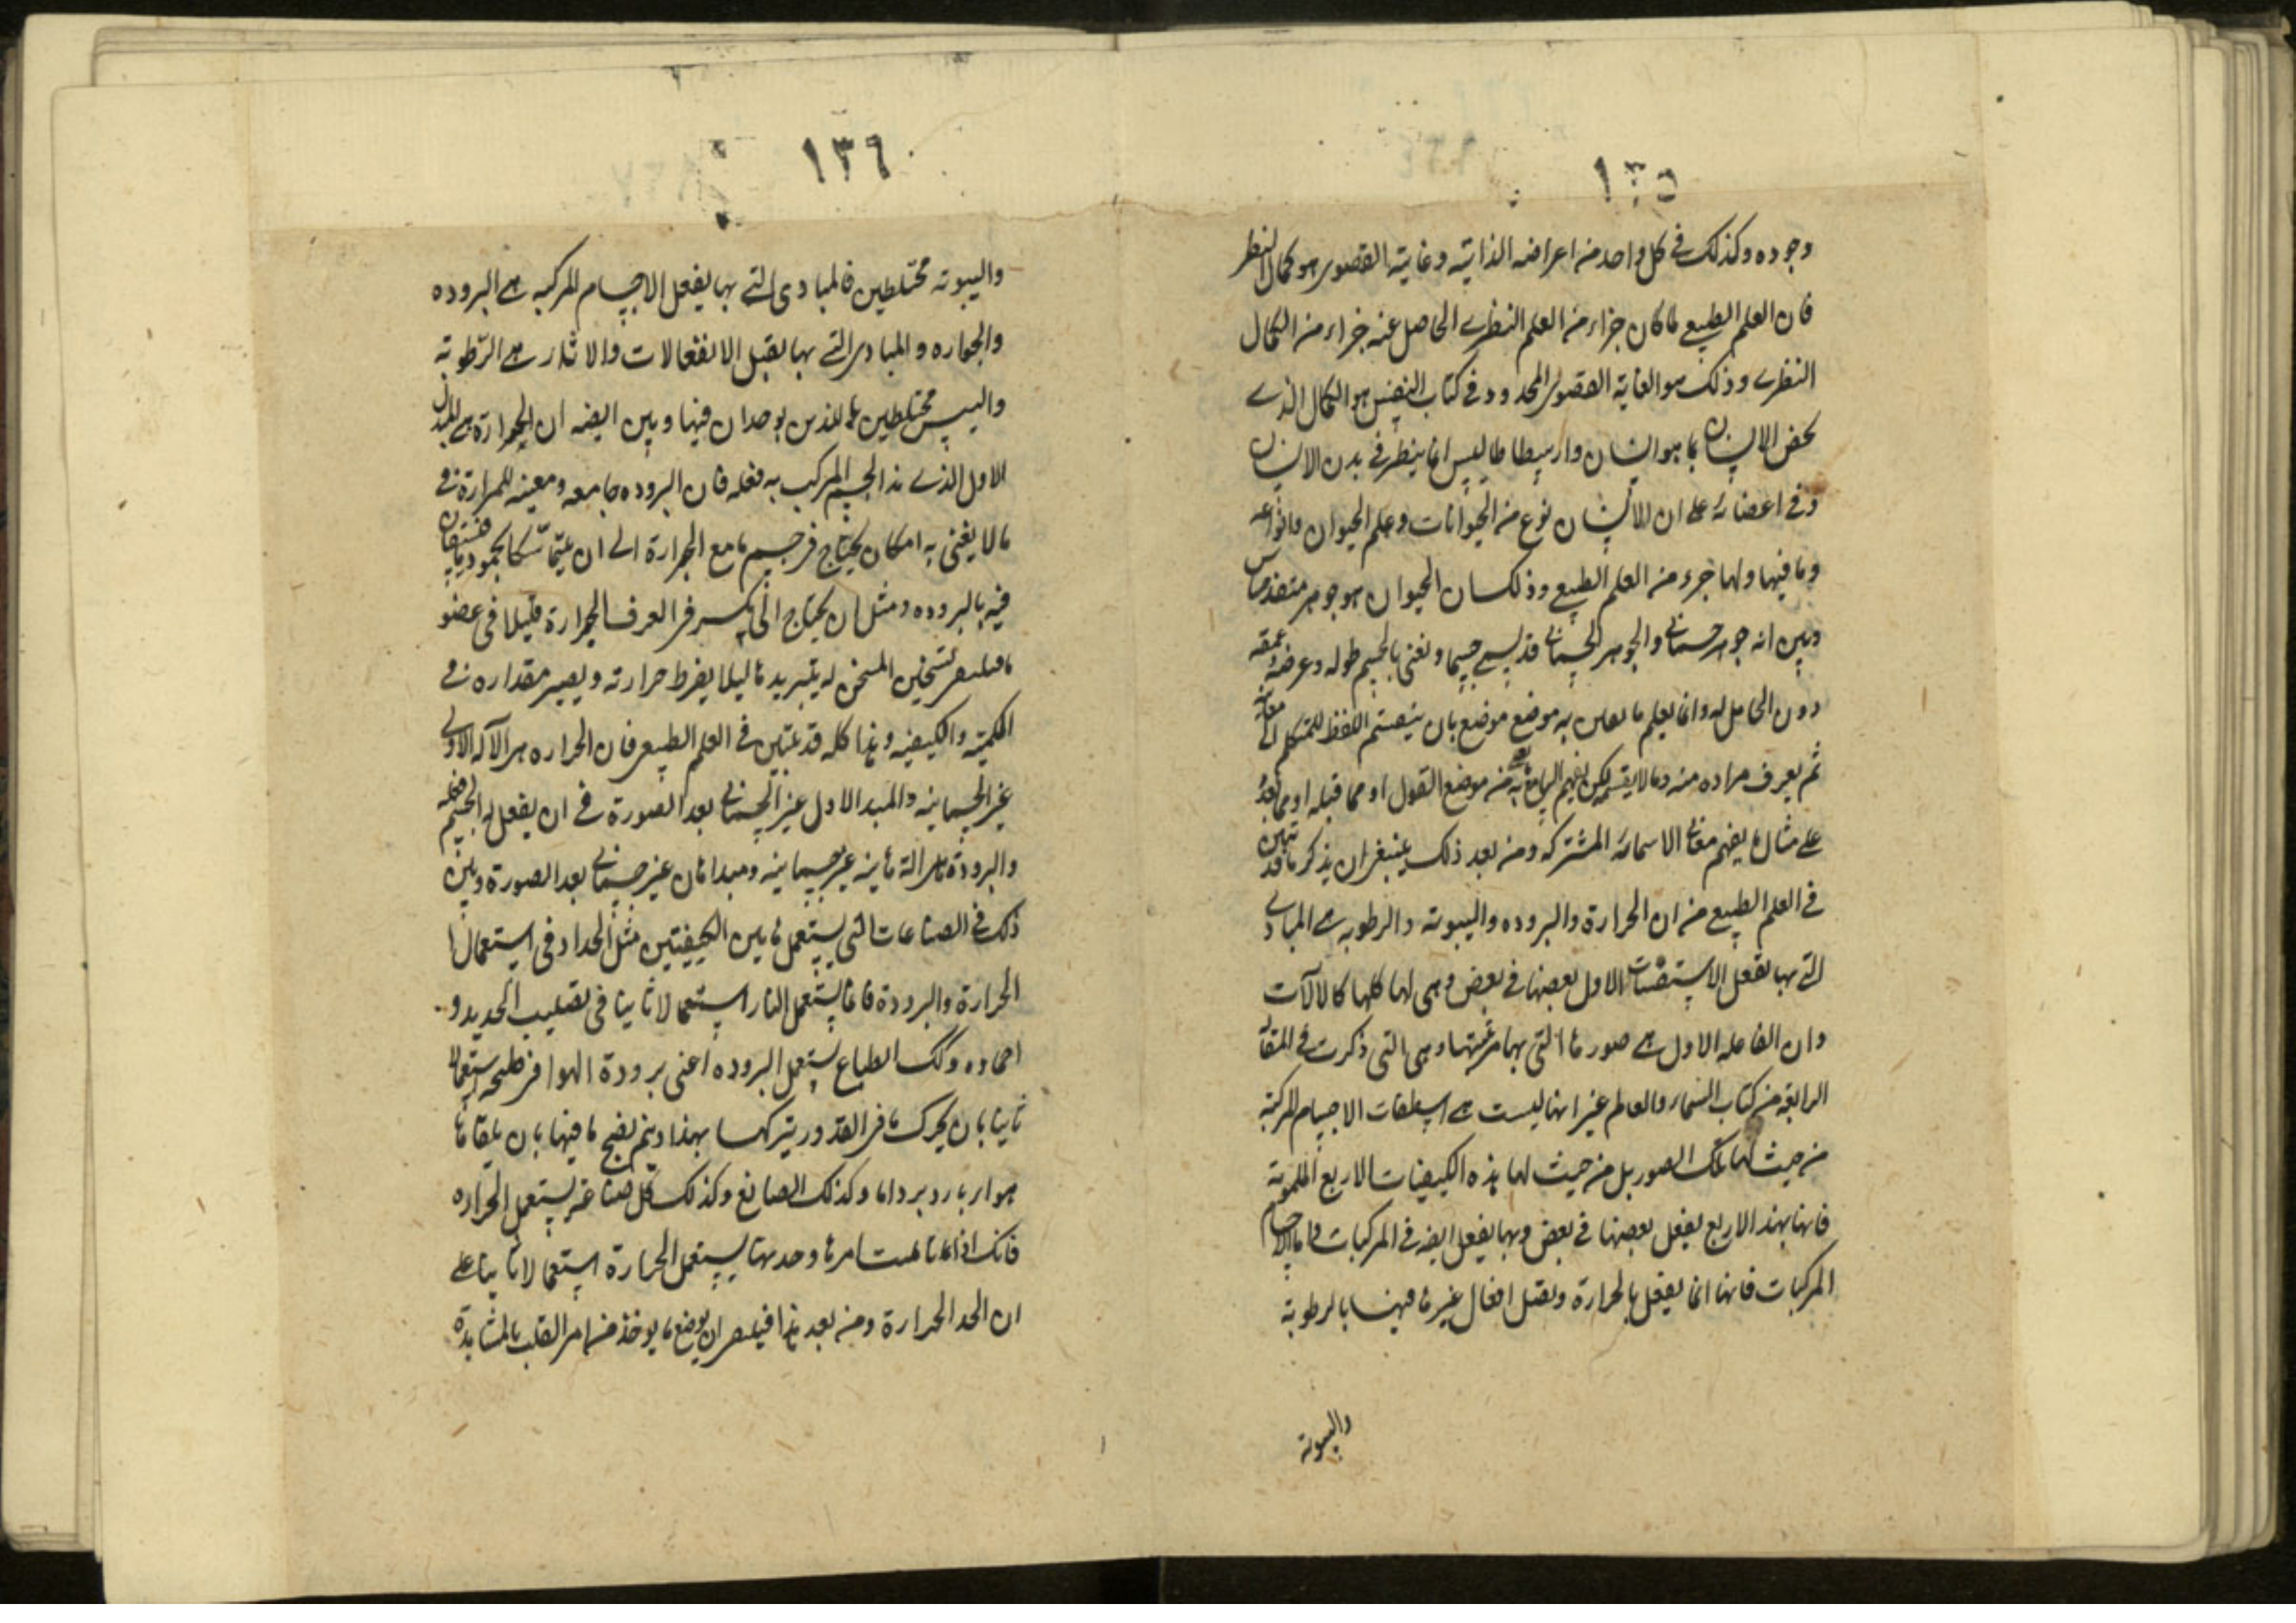 ١٣٥
وجوده وكذلك في كل واحد من اعراضه الذاتية وغايته القصوى هو كمال النظر
فان العلم الطبيعي لما كان جزاء من العلم النظرى الحاصل عنه جزاء من الكمال
النظرى وذلك هو الغاية القصوى المحدود في كتاب النفس هو الكمال الذى
يخص الانسان بما هو انسان وارسطاطاليس انما ينظر في بدن الانسان
وفي اعضائه على ان الانسان نوع من الحيوانات وعلم الحيوان وانواعه
وما فيها ولها جزء من العلم الطبيعي وذلك ان الحيوان هو جوهر متنفس
وبين انه جوهر جسمانى والجوهر الجسمانى قد يسمى جسما ونعنى بالجسم طوله وعرضه وعمقه
دون الحامل له وانما يعلم ما به موضع موضع بان اللفظ للمتكلم معانيه
ثم يعرف مراده منه من موضع القول او مما قبله او مما بعده
على مثال ما يفهم معانى الاسماء المشتركة ومن بعد ذلك ينبغى ان يذكر ما قد تبين
في العلم الطبيعي من ان الحرارة والبروده واليبوته والرطوبه هى المبادى
التى بها تفعل الاستقسات الاول بعضها في بعض وهى لها كلها كالالات
وان الفاعله الاول هى صورها التى بها وهى التى ذكرت في المقالة
الرابعة من كتاب السماء والعالم غير انها ليست هى اسطقسات الاجسام المركبة
من حيث لها تلك الصور بل من حيث لها هذه الكيفيات الاربع الملموسة
فانها بهذه الاربع يفعل بعضها في بعض وبها يفعل ايضه في المركبات واما الاجسام
المركبات فانها انما يفعل بالحرارة ويقبل افعال غيرها فيها بالرطوبة
واليبوته
١٣٦
واليبوته مختلطين فالمبادى التى بها يفعل الاجسام المركبه هى البروده
والحراره والمبادى التى بها يقبل الانفعالات والاثار هى الرطوبة
واليبس مختلطين اللذين يوجدان فيها وبين ايضه ان الحرارة هى المبدا
الاول الذى هذا الجسم المركب به فعله فان البروده جامعه ومعينه للحرارة في
مالا يغنى به امكان يحتاج في جسم ما مع الحرارة الى ان يتماسكا بجمود ما
فيه بالبروده ومثل ان يحتاج الى كسر الحرارة قليلا في عضو
المسخن له بتبريد ما ليلا يفرط حرارته ويصير مقداره في
الكمية والكيفيه وهذا كله قد تبين في العلم الطبيعي فان الحراره هى الآله الاولى
غير الجسمانيه والمبدا الاول غير الجسمانى بعد الصورة في ان يفعل به الجسم فعله
والبرودة هى الة ثانيه غير جسمانيه ومبدا ثان غير جسمانى بعد الصورة وبين
ذلك في الصناعات التى يستعمل هاتين الكيفيتين مثل الحداد في استعمال
الحرارة والبرودة فانما يستعمل النار استعمالا ثانيا في تصليب الحديد و
احماده وكك الطباخ يستعمل البروده اعنى برودة الهوا في طبخه استعمالا
ثانيا بان يحرك ما في القدور بهذا ويتم نضج ما فيها بان يلقاها
هواء بارد برداما وكذلك الصايغ وكذلك كل صناعة يستعمل الحراره
فانك اذا تاملت امرها وجدتها يستعمل الحرارة استعمالا ثانيا على
ان الحد الحرارة ومن بعد هذا ان يوضع ما يوخذ من امر القلب بالمشاهدة